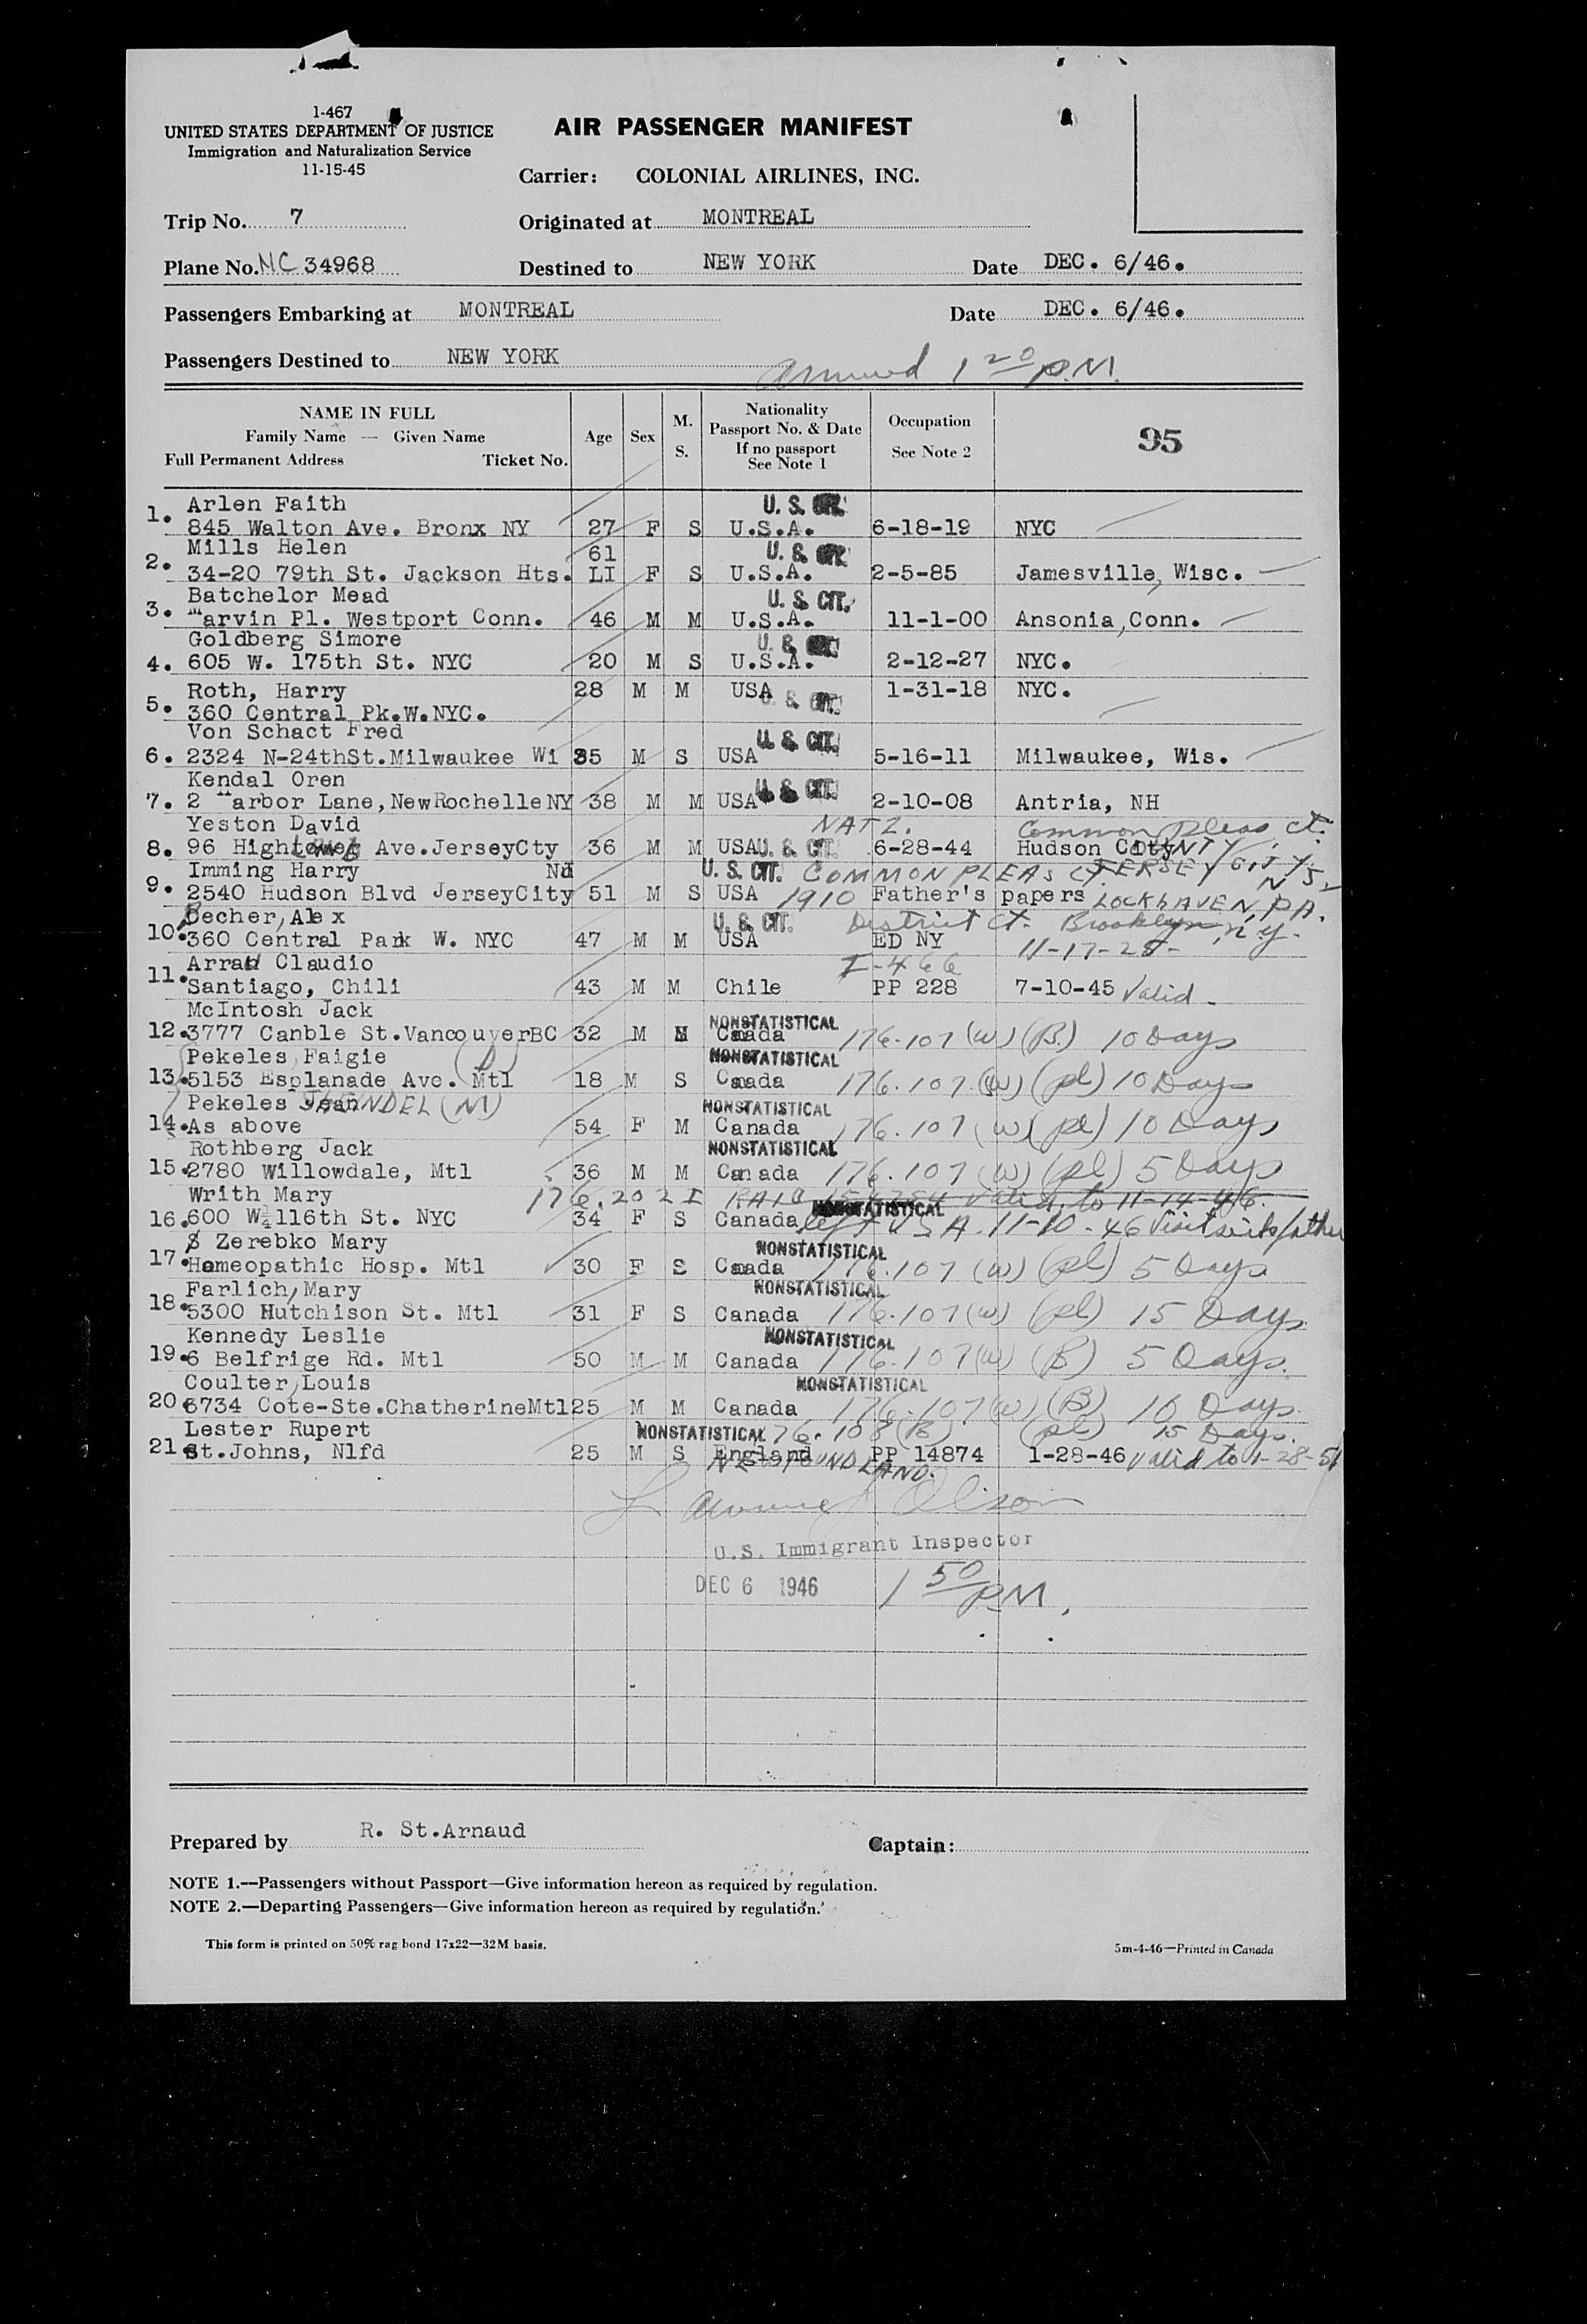 1-467
UNITED STATES DEPARTMENT OF JUSTICE
Immigration and Naturalization Service
11-15-45
AIR PASSENGER MANIFEST
Carrier: COLONIAL AIRLINES, INC.
Trip No. 7 Originated at MONTREAL
Plane No. NC 34968 Destined to NEW YORK Date DEC. 6/46.
Passengers Embarking at MONTREAL Date DEC. 6/46.
Passengers Destined to NEW YORK
Arrived 1 20 P.M.
NAME IN FULL
Family Name — Given Name
Full Permanent Address Ticket No.
Age Sex M. S.
Nationality
Passport No. & Date
If no passport
See Note 1
Occupation
See Note 2
95
Arlen Faith U. S. CIT.
1. 845 Walton Ave. Bronx NY 27 F S U.S.A. 6-18-19 NYC
Mills Helen 61 U. S. CIT.
2. 34-20 79th St. Jackson Hts. LI F S U.S.A. 2-5-85 Jamesville, Wisc.
Batchelor Mead U. S. CIT.
3. Marvin Pl. Westport Conn. 46 M M U.S.A. 11-1-00 Ansonia, Conn.
Goldberg Simore U. S. CIT.
4. 605 W. 175th St. NYC 20 M S U.S.A. 2-12-27 NYC.
Roth, Harry 28 M M USA 1-31-18 NYC.
5. 360 Central Pk.W.NYC. U. S. CIT.
Von Schact Fred U. S. CIT.
6. 2324 N-24thSt.Milwaukee Wi 35 M S USA 5-16-11 Milwaukee, Wis.
Kendal Oren U. S. CIT.
7. 2 Harbor Lane,NewRochelleNY 38 M M USA 2-10-08 Antria, NH
Yeston David NATZ. Common Pleas Ct.
8. 96 Ave.JerseyCty 36 M M USA U. S. CIT. 6-28-44 Hudson County
Imming Harry U. S. CIT. COMMON PLEAS CT. JERSEY CITY
9. 2540 Hudson Blvd JerseyCity 51 M S USA 1910 Father's papers LOCKHAVEN, PA.
Becher, Alex U. S. CIT. District Ct. Brooklyn, N.Y.
10. 360 Central Park W. NYC 47 M M USA ED NY
Arrau Claudio I-466
11. Santiago, Chili 43 M M Chile PP 228 7-10-45 Valid
McIntosh Jack NONSTATISTICAL
12. 3777 Canble St.VancouverBC 32 M M Canada 176.107 (W) (B) 10 Days
Pekeles Faigie (D) NONSTATISTICAL
13. 5153 Esplanade Ave. Mtl 18 M S Canada 176.107 (W) (pl) 10 Days
Pekeles (M) NONSTATISTICAL
14. As above 54 F M Canada 176.107 (W) (pl) 10 Days
Rothberg Jack NONSTATISTICAL
15. 2780 Willowdale, Mtl 36 M M Canada 176.107 (W) (pl) 5 Days
Writh Mary 176.202 I valid to 11-14-46.
16. 600 W. 116th St. NYC 34 F S Canada NONSTATISTICAL left USA 11-10-46 Visit sick father
Zerebko Mary NONSTATISTICAL
17. Homeopathic Hosp. Mtl 30 F S Canada 176.107 (W) (pl) 5 Days
Farlich, Mary NONSTATISTICAL
18. 5300 Hutchison St. Mtl 31 F S Canada 176.107 (W) (pl) 15 Days
Kennedy Leslie NONSTATISTICAL
19. 6 Belfrige Rd. Mtl 50 M M Canada 176.107 (W) (B) 5 Days.
Coulter, Louis NONSTATISTICAL
20. 6734 Cote-Ste.ChatherineMtl 25 M M Canada 176.107 (W) (B) 10 Days.
Lester Rupert NONSTATISTICAL 176.108 (B) (pl) 15 Days.
21. St.Johns, Nlfd 25 M S England PP 14874 1-28-46 valid to 1-28-51
NEWFOUNDLAND.
Olson
U.S. Immigrant Inspector
DEC 6 1946 1 50 P.M.
Prepared by R. St.Arnaud Captain:
NOTE 1.—Passengers without Passport—Give information hereon as required by regulation.
NOTE 2.—Departing Passengers—Give information hereon as required by regulation.
This form is printed on 50% rag bond 17x22—32M basis. 5m-4-46—Printed in Canada